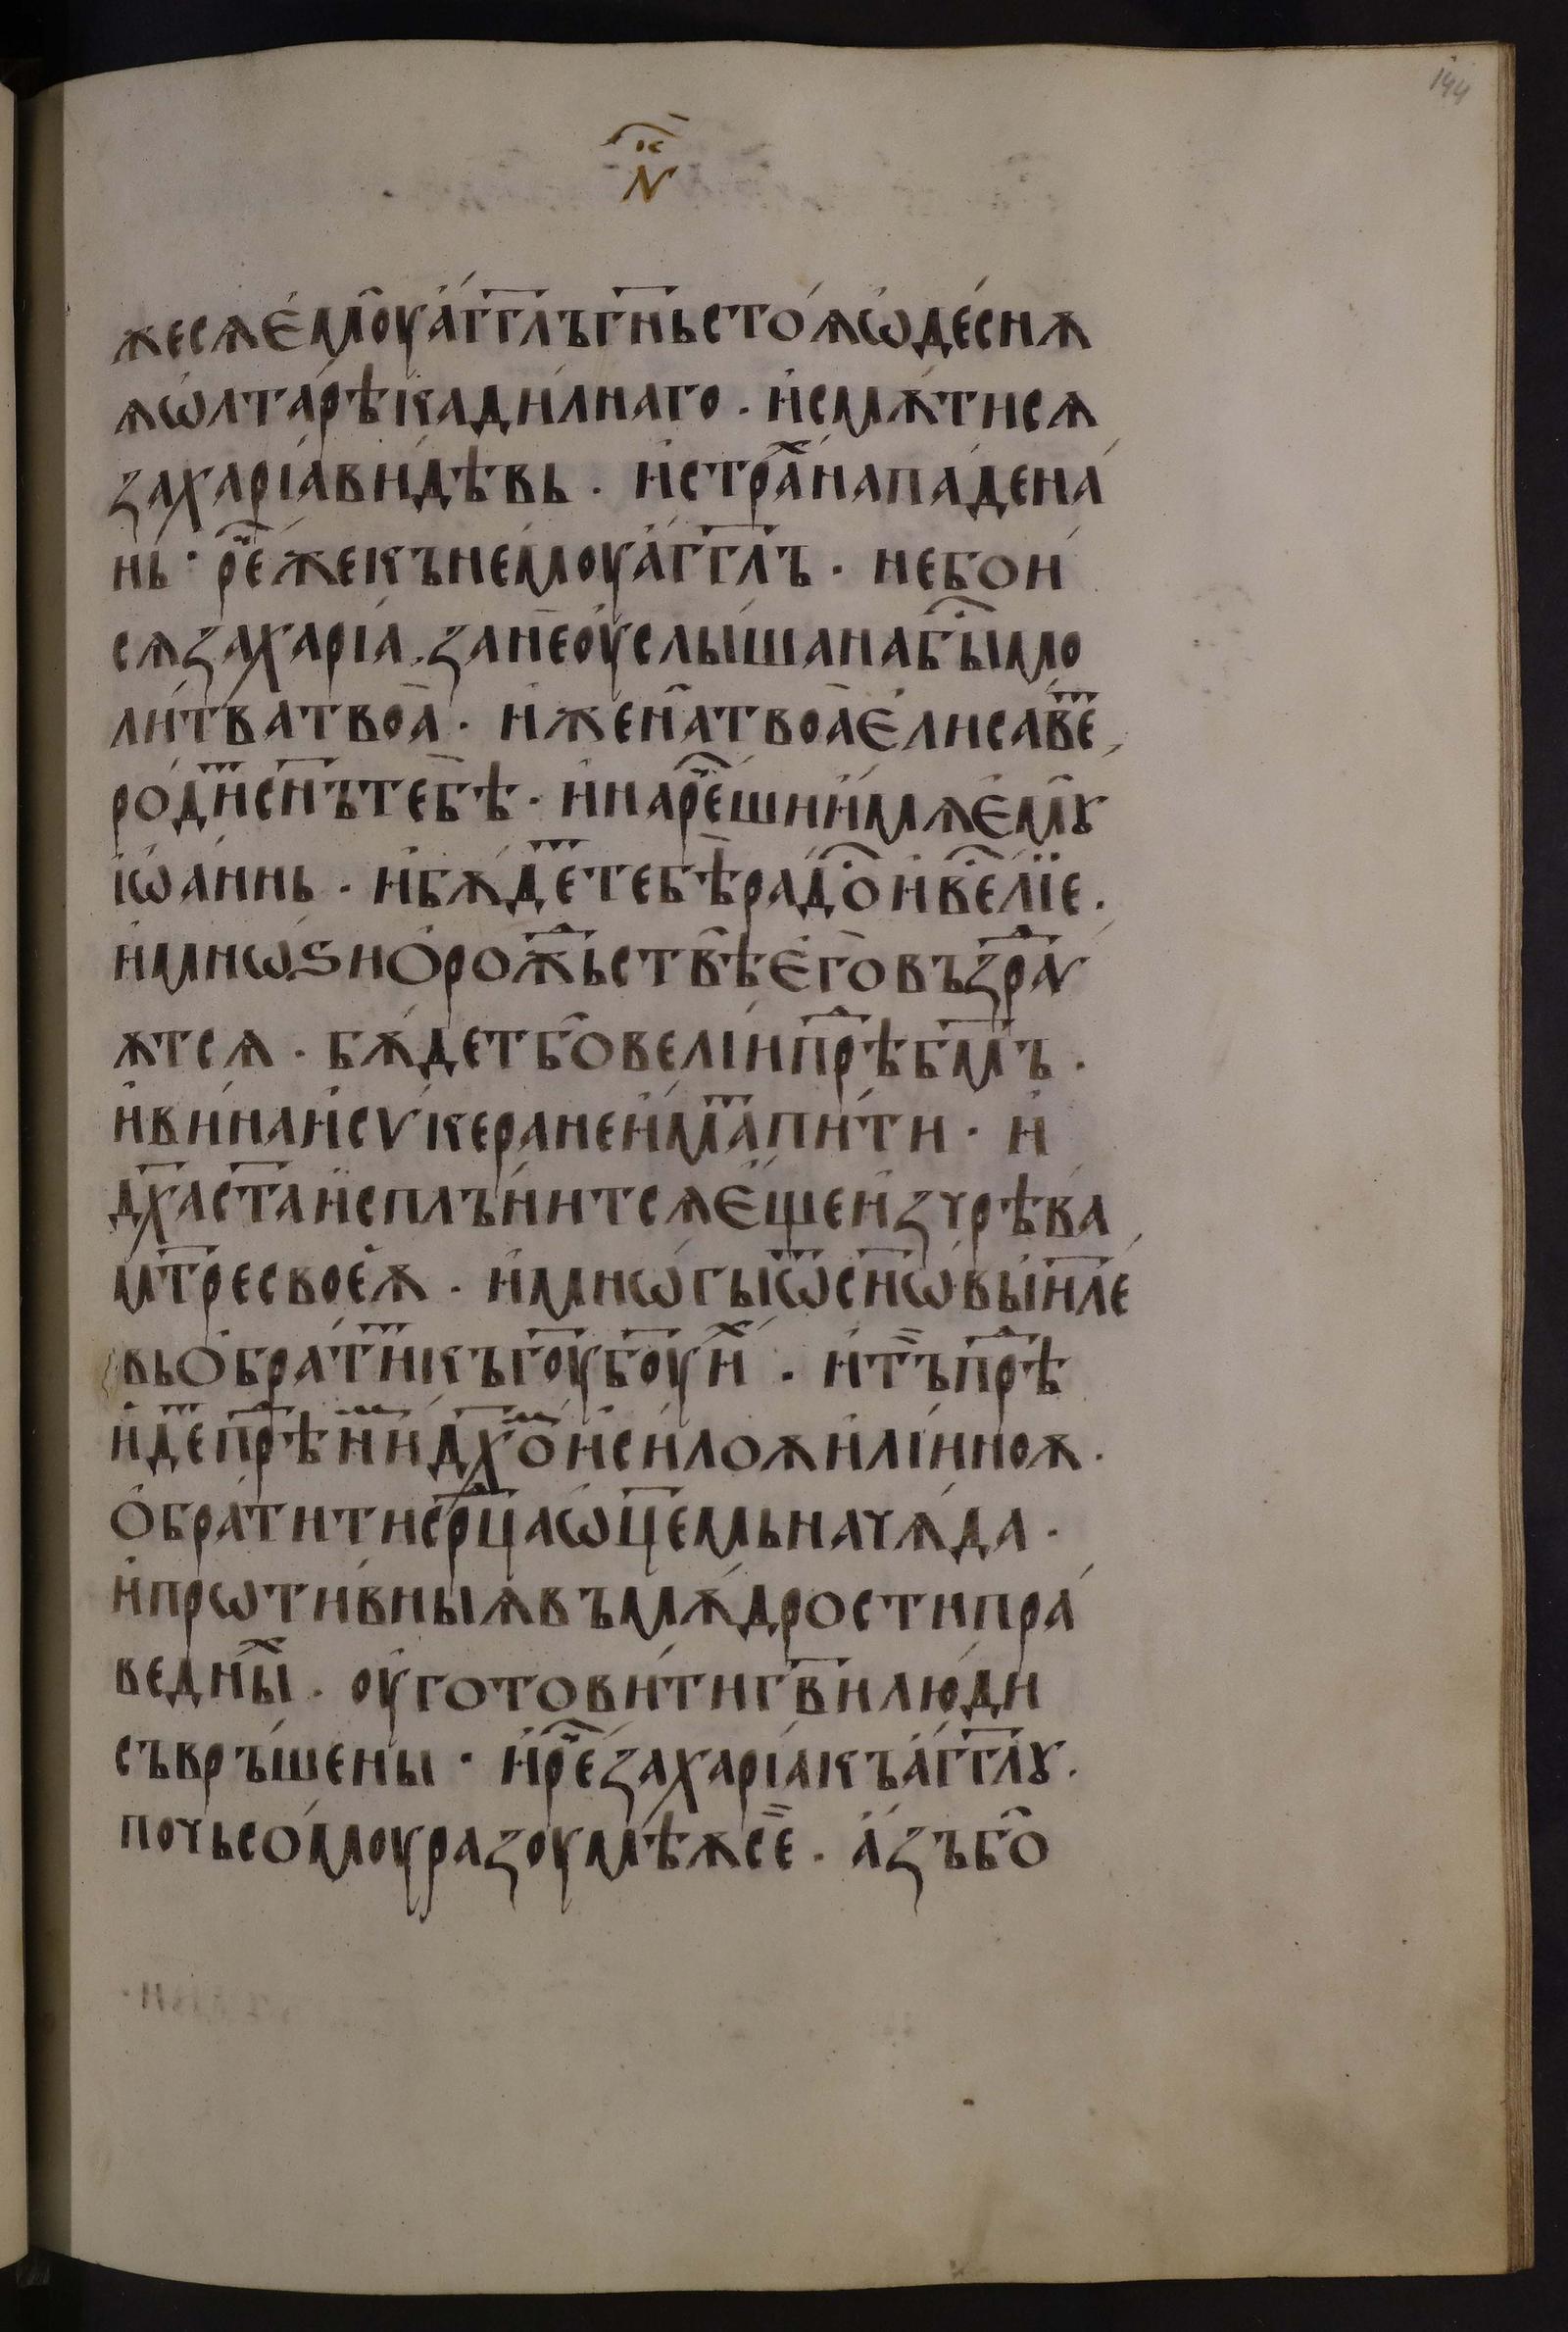 144
к҃
N
жесѧ є҆мꙋ̑ а҆́гг҃лъ гн҃ь стоѧ́ ѡ҆ деснѫ́
ѫ ѡ҆лтарѣ̀ кадил́наго . и҆ смѧ́тисѧ
заха́ріа ви́дѣвь . и҆ страⷯ напа́де на́
нь · рⷱе́ же къ немоу а҆́гг҃лъ . не бои́
сѧ заха́ріа . зане̄ оу҆слы́шана бы́ⷭ мо
ли́тва твоа̀ . и҆ жена̑ твоа̀ є҆лиса́веⷮ ,
роди́ⷮ сн҃ъ тебѣ̀ . и҆ нареⷱ́ши и҆́мѧ є҆мꙋ̑
і҆ѡа́ннь . и҆ бѫ́деⷮ тебѣ̀ ра́доⷭ и҆ ве́сⷭелїе .
и҆ мнѡ́ѕи ѻ҆ рожⷣьствѣ̑ є҆го̀ въздра́
ѫтсѧ . бѫ́дет бо̑ ве́лїи прⷣѣ бм҃ъ .
и҆ вина̀ и҆ сѵкера не и҆́маⷮ пи́ти . и҆
дх҃а ст҃а и҆спль́нитсѧ є҆ще и҆з чрѣ́ва ,
мт҃ре своеѧ̀ . и҆ мнѡ́гы ѿ сн҃ѡ́вь і҆и҃ле
вь ѻ҆брати́ⷮ къ го҃у бо҃у иⷯ . и҆ тъ̀ прⷣѣ
и҆́деⷮ прⷣѣ ниⷨ́ дх҃оⷨ и҆ си́лоѫ и҆лїи́ноѫ .
ѻ҆брати́ти срⷣца ѻ҆ц҃емь на чѧ́да .
и҆ прѡти́вныѧ въ мѫ́дрости пра́
ведныⷯ . оу҆готови́ти гв҃и лю́ди
съвръ́шены · и҆ рⷱе́ заха́ріа къ а҆́гг҃лꙋ .
по чьсо́моу разоумѣ́ѫ се̏ . а҆́зъ бо̑